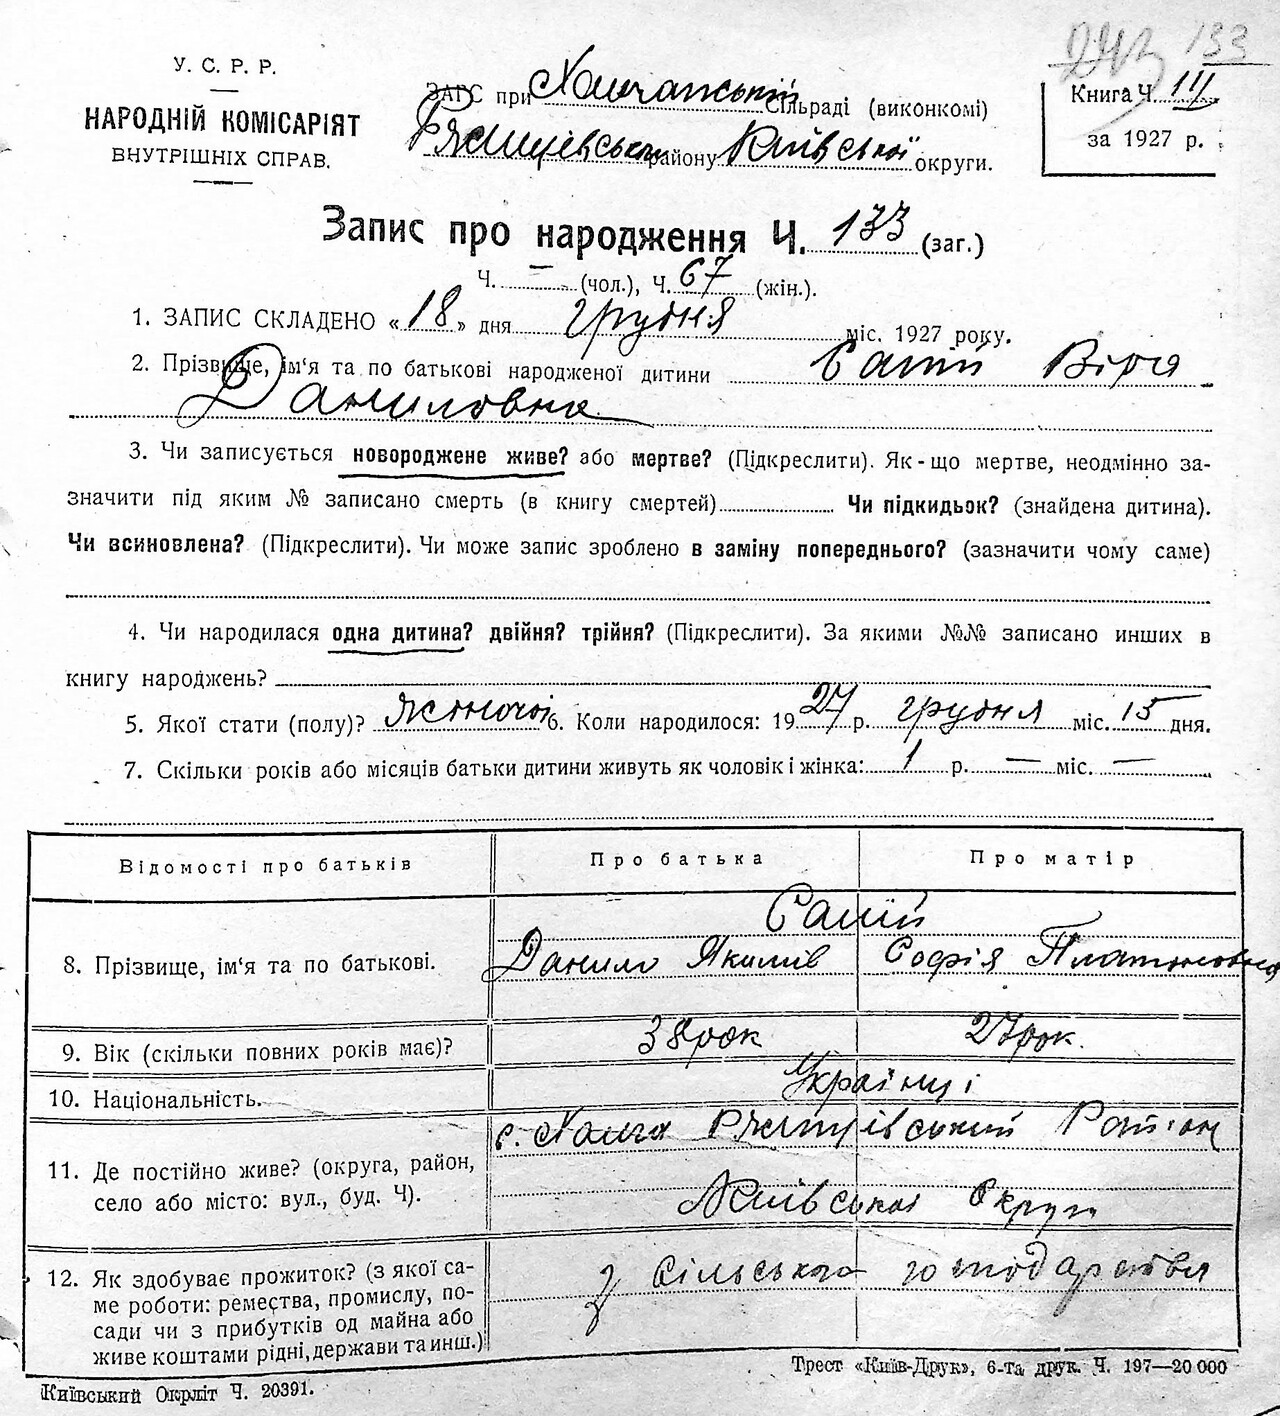 243 133
У. С. Р. Р.
НАРОДНІЙ КОМІСАРІЯТ
ВНУТРІШНІХ СПРАВ.
ЗАГС при Хальчанській Сільраді (виконкомі)
району Київської округи.
Книга Ч. III
за 1927 р.
Запис про народження Ч. 133 (заг.)
Ч. — (чол.), Ч. 67 (жін.).
1. ЗАПИС СКЛАДЕНО «18» дня грудня міс. 1927 року.
2. Прізвище, ім‘я та по батькові народженої дитини Салій Віря
Даниловна
3. Чи записується новороджене живе? або мертве? (Підкреслити). Як-що мертве, неодмінно за-
значити під яким № записано смерть (в книгу смертей) Чи підкидьок? (знайдена дитина).
Чи всиновлена? (Підкреслити). Чи може запис зроблено в заміну попереднього? (зазначити чому саме)
4. Чи народилася одна дитина? двійня? трійня? (Підкреслити). За якими №№ записано инших в
книгу народжень?
5. Якої стати (полу)? жіночої 6. Коли народилося: 1927 р. грудня міс. 15 дня.
7. Скільки років або місяців батьки дитини живуть як чоловік і жінка: 1 р. — міс. —
Відомості про батьків Про батька Про матір
Салій
8. Прізвище, ім‘я та по батькові. Данило Якимів Софія Платоновна
9. Вік (скільки повних років має)? 38 рок 27 рок.
10. Національність. Українці
с. Халча Район
11. Де постійно живе? (округа, район,
село або місто: вул., буд. Ч). Київської Округи
12. Як здобуває прожиток? (з якої са-
ме роботи: ремества, промислу, по-
сади чи з прибутків од майна або
живе коштами рідні, держави та инш.)
з сільського господарства
Київський Окрліт Ч. 20391.
Трест «Київ-Друк», 6-та друк. Ч. 197—20 000